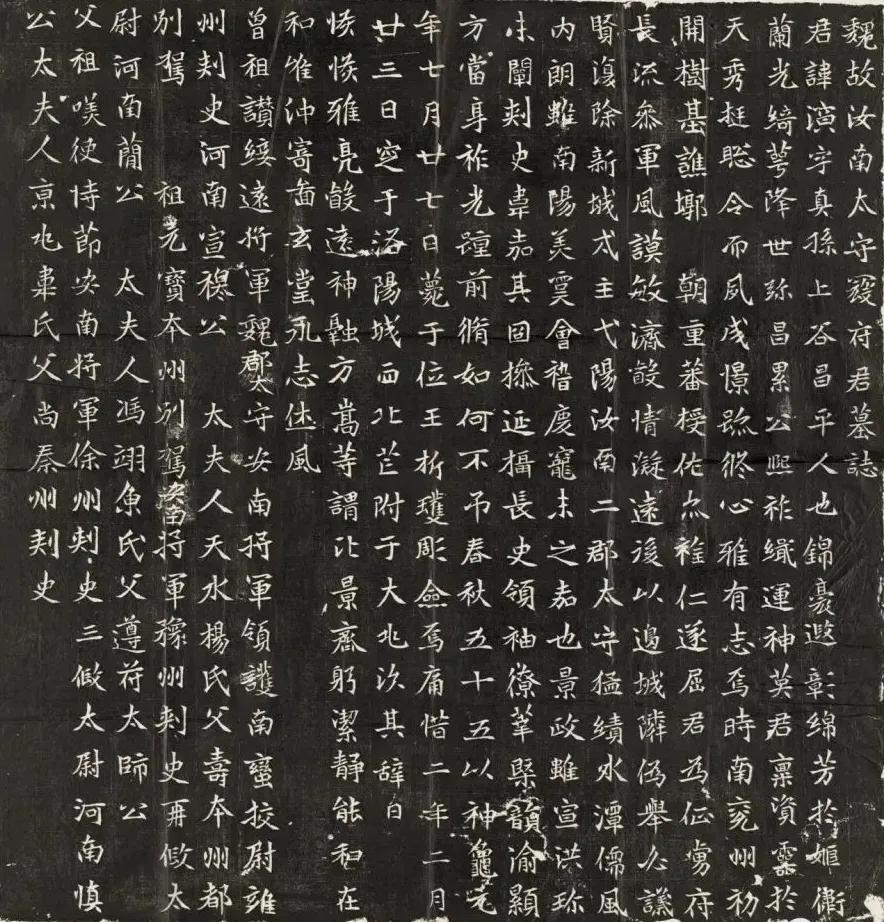 魏故汝南太守寇府君墓誌
君諱演字真孫上谷昌平人也錦裘遐彰綿芳於姬衛
蘭光綺萼降世弥昌累公熙祚織運神英君稟資靈於
天秀挺聡令而夙成憬踈終心雅有志焉時南兗州初
開樹基譙墎 朝重蕃授佐亦雜仁遂屈君為征虜府
長流叅軍風謨敏濟毅情凝遠後以邊城隣偽舉必議
賢復除新城戍主弋陽汝南二郡太守猛績水潭儒風
內朗雖南陽美霙會稽慶寵未之嘉也景政雖宣洪珎
未闡刾史韋嘉其固㩜延攝長史領袖僚菶槩韻渝顯
方當身祚光踵前脩如何不吊春秋五十五以神龜元
年七月廿七日薨于位玉析瓊彫僉焉痛惜二年二月
廿三日窆于洛陽城西北芒附于大兆次其辞曰
悏悏雅亮毅遠神融方嵩等謂比景齊躬潔静能和在
和惟沖寄啚玄堂永志徃風
曽祖讃綏遠將軍魏郡太守安南將軍領護南蠻挍尉雍
州刾史河南宣穆公 太夫人天水楊氏父壽本州都
別駕 祖元寳本州別駕安南將軍豫州刾史再假太
尉河南蕳公 太夫人馮翊魚氏父遵苻太師公
父祖嘆使持節安南將軍徐州刾史三假太尉河南慎
公太夫人京兆韋氏父尚秦州刾史